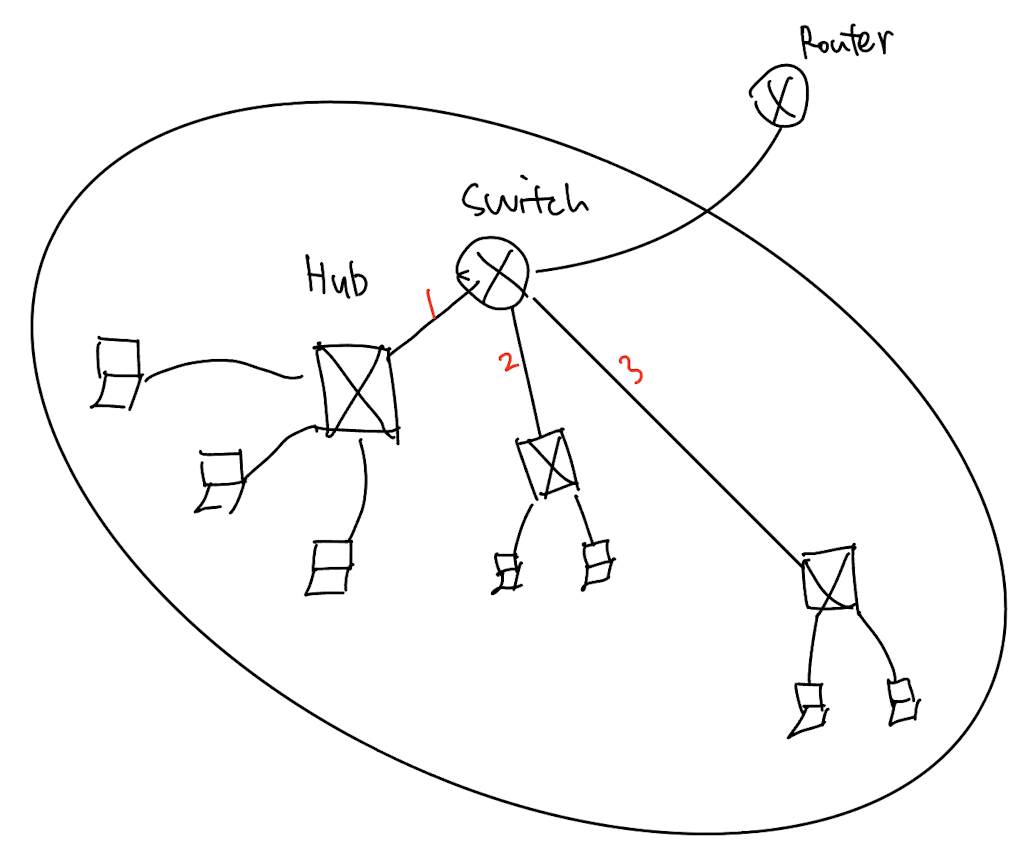 Router
Switch
Hub
1
2
3